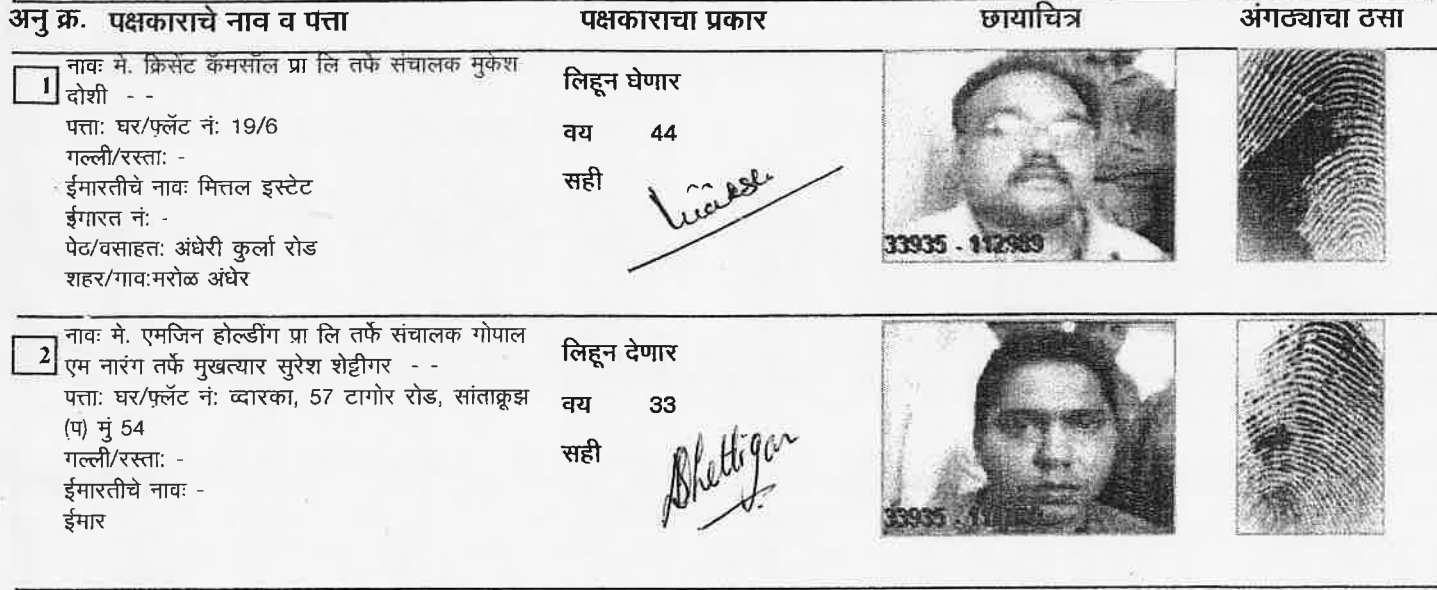 अनु क्र. पक्षकाराचे नाव व पत्ता पक्षकाराचा प्रकार छायाचित्र अंगठ्याचा ठसा
1 नावः मे. क्रिसेंट कॅमसॉल प्रा लि तर्फे संचालक मुकेश
दोशी - -
पत्ता: घर/फ्लॅट नं: 19/6
गल्ली/रस्ता: -
ईमारतीचे नावः मित्तल इस्टेट
ईगारत नं: -
पेठ/वसाहत: अंधेरी कुर्ला रोड
शहर/गाव:मरोळ अंधेर
लिहून घेणार
वय 44
सही
33935 - 112989
2 नावः मे. एमजिन होल्डींग प्रा लि तर्फे संचालक गोपाल
एम नारंग तर्फे मुखत्यार सुरेश शेट्टीगर - -
पत्ता: घर/फ्लॅट नं: व्दारका, 57 टागोर रोड, सांताक्रूझ
(प) मुं 54
गल्ली/रस्ता: -
ईमारतीचे नावः -
ईमार
लिहून देणार
वय 33
सही Shettigar
33935 -